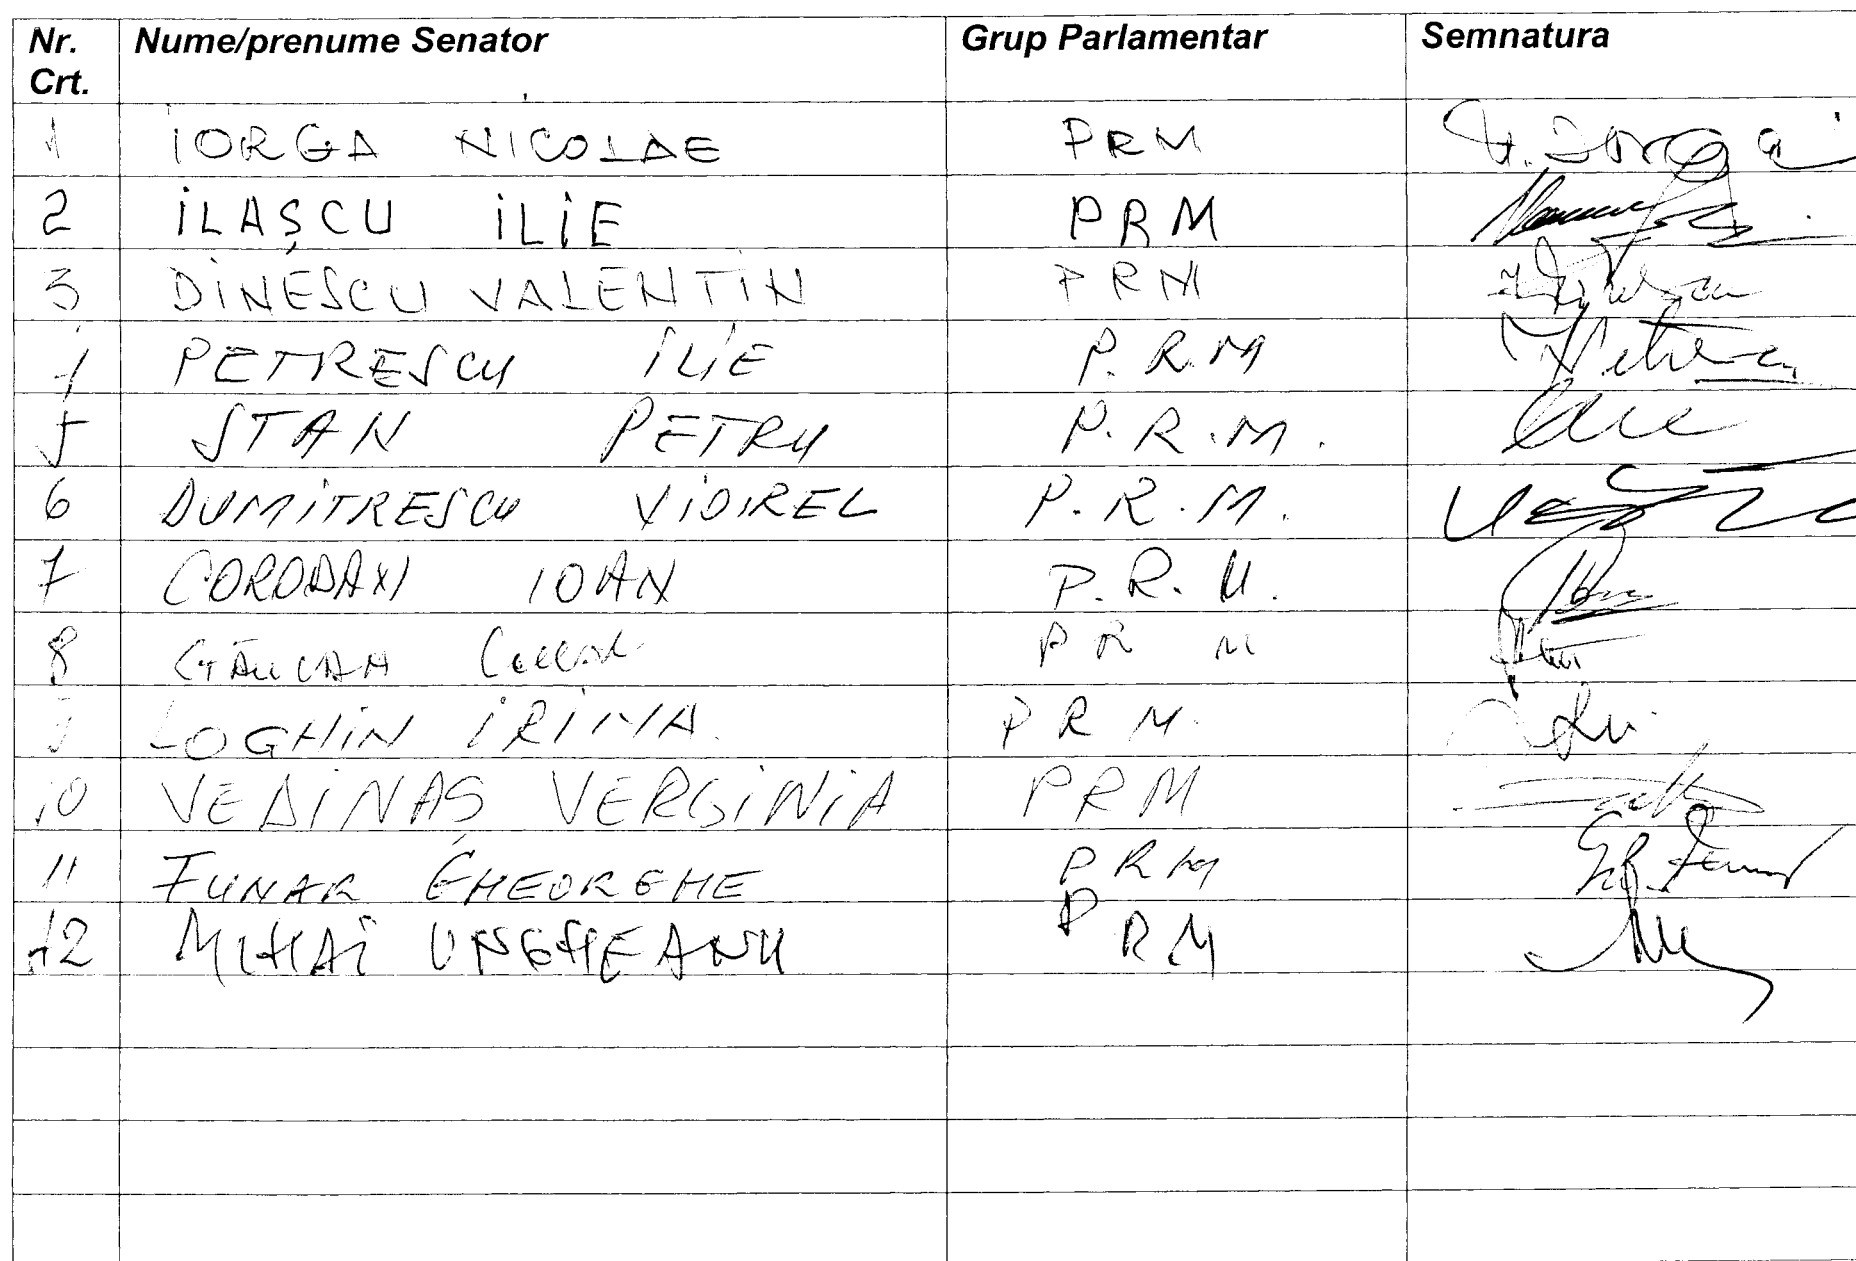 Nr. Crt. Nume/prenume Senator Grup Parlamentar Semnatura
1 IORGA NICOLAE PRM N. Iorga
2 ILAȘCU ILIE PRM
3 DINESCU VALENTIN PRM
4 PETRESCU ILIE P.R.M
5 STAN PETRU P.R.M.
6 DUMITRESCU VIOREL P.R.M.
7 IOAN P.R.M.
8 PRM
9 LOGHIN IRINA PRM.
10 VEDINAȘ VERGINIA PRM
11 FUNAR GHEORGHE PRM
12 MIHAI UNGHEANU PRM